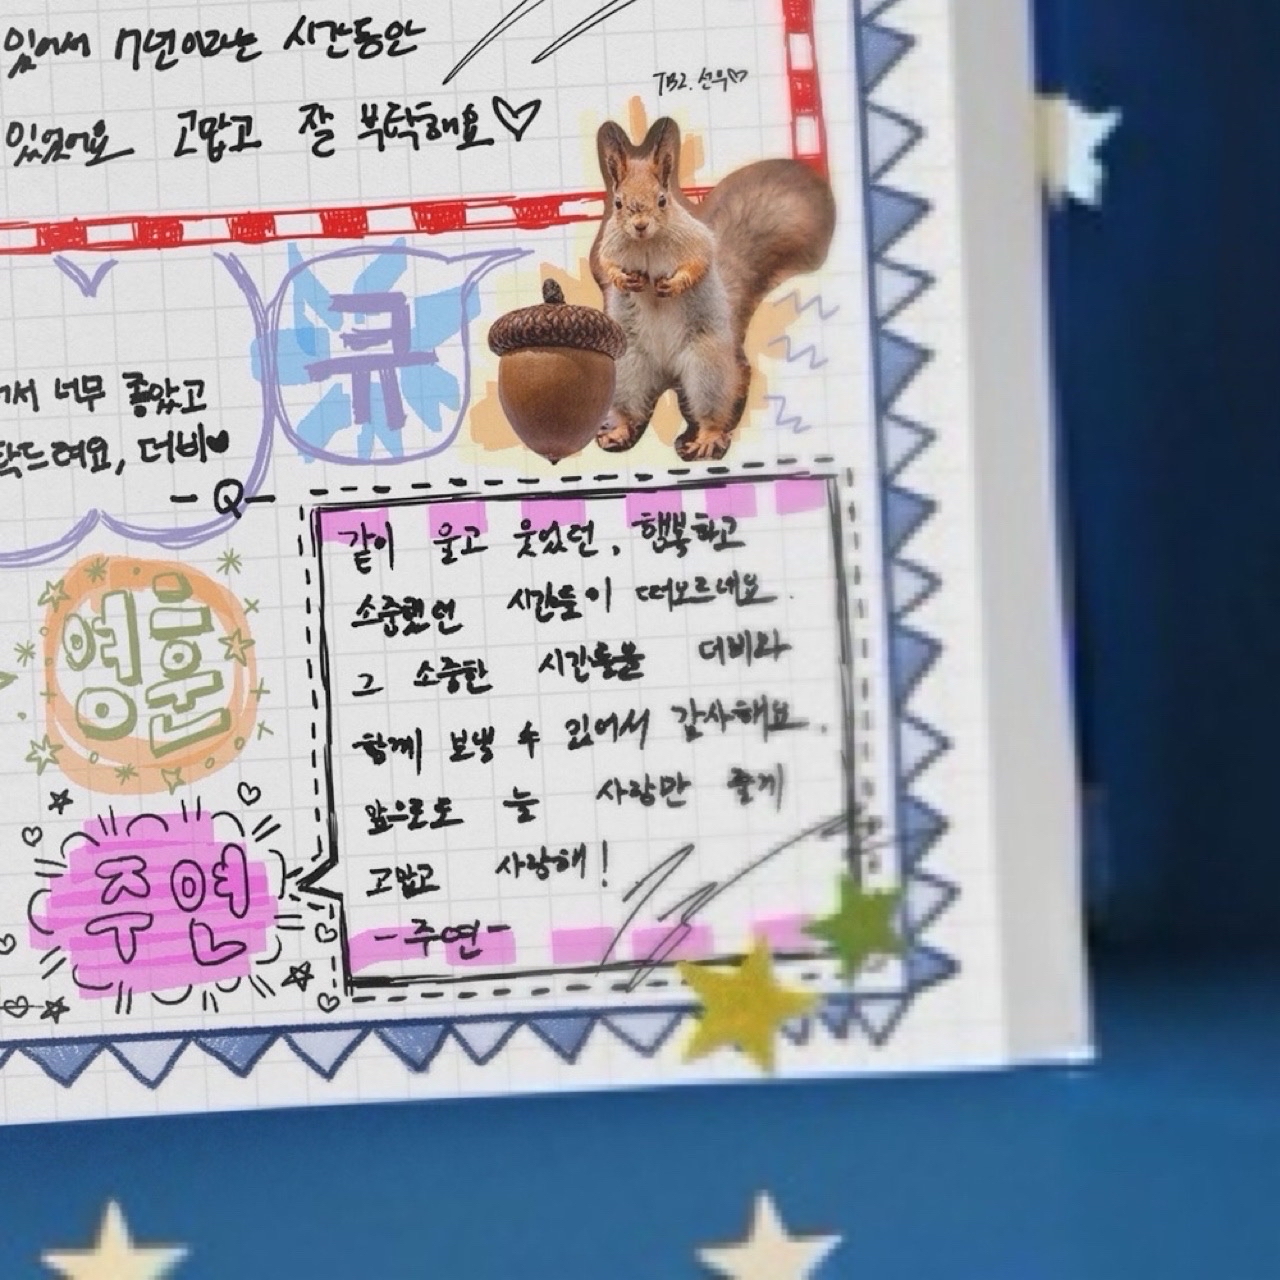 있어서 7년이라는 시간동안
있었어요 고맙고 잘 부탁해요♡
TBZ. 선우♡
큐
서 너무 좋았고
탁드려요, 더비♥
- Q -
영훈
주연
같이 울고 웃었던, 행복하고
소중했던 시간들이 떠오르네요.
그 소중한 시간들을 더비와
함께 보낼 수 있어서 감사해요.
앞으로도 늘 사랑만 줄게
고맙고 사랑해!
- 주연 -